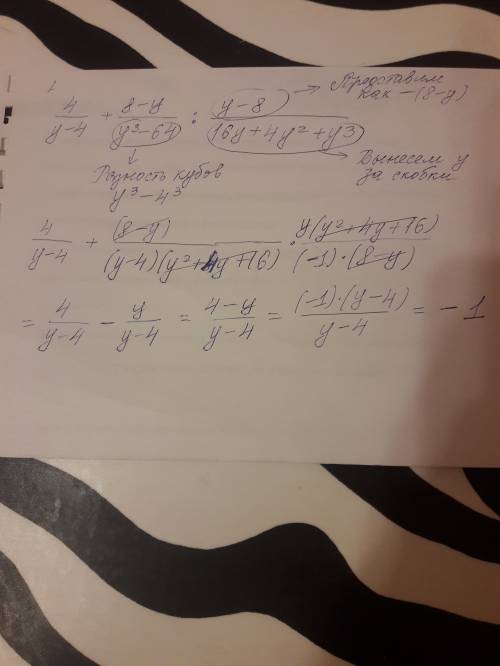 4/(y-4) + (8-y)/(y³-64) : (y-8)/(16y+4y²+y³)
Представим
как -(8-y)
Разность кубов
y³-4³
Вынесем y
за скобки
4/(y-4) + (8-y)/((y-4)(y²+4y+16)) · y(y²+4y+16)/((-1)·(8-y))
= 4/(y-4) - y/(y-4) = (4-y)/(y-4) = (-1)·(y-4)/(y-4) = -1